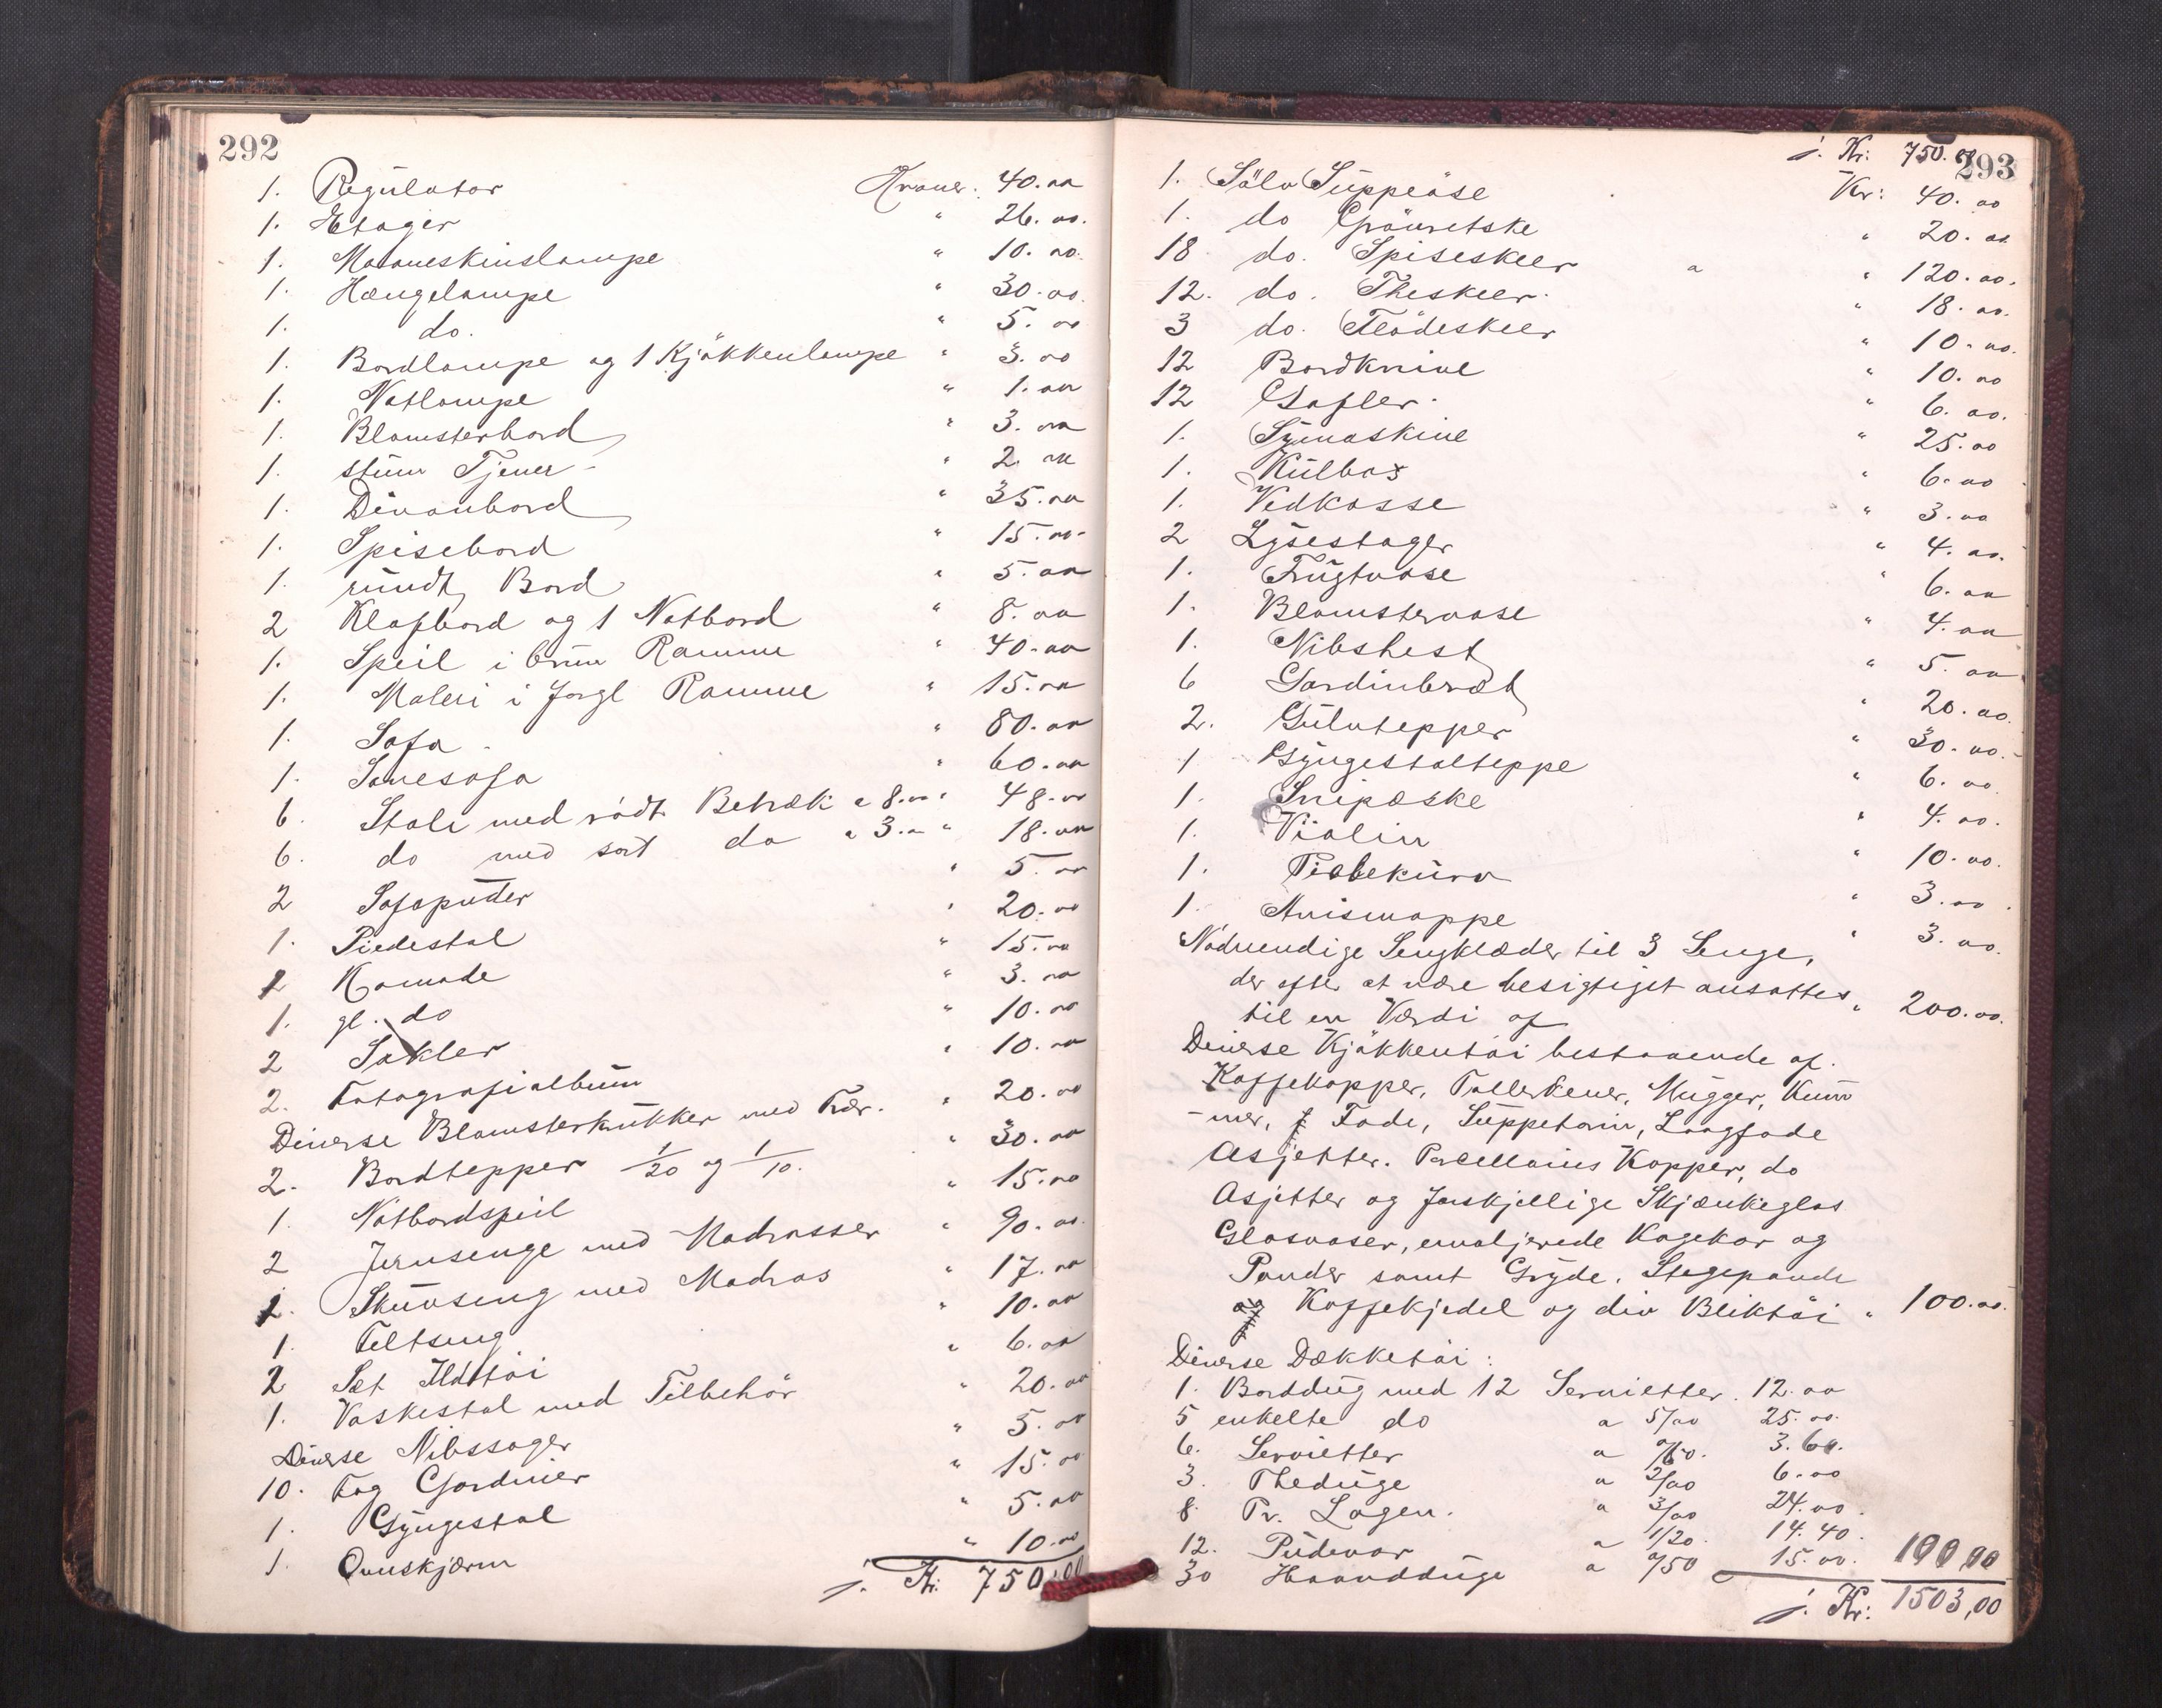 292
1. Regulator Kroner: 40.00
1. Etager " 26.00.
1. Maaneskinslampe " 10.00.
1. Hængelampe " 30.00.
1. do. " 5.00
1. Bordlampe og 1 Kjökkenlampe " 3.00
1. Natlampe " 1.00
1. Blomsterbord " 3.00
1. stum Tjener " 2.00
1. Divanbord " 35.00
1. Spisebord " 15.00
1. rundt Bord " 5.00
2 Klapbord og 1 Natbord " 8.00
1. Speil i brun Ramme " 40.00
1. Maleri i forgl Ramme " 15.00
1. Sofa " 80.00
1. Sovesofa " 60.00
6. Stole med rödt Betræk a 8.00 " 48.00
6. do med sort do a 3.00 " 18.00
2 Sofaputer " 5.00
1. Piedestal " 20.00
2 Komode " 15.00
1. gl. do " 3.00
2 Sakler " 10.00
2. Fotografialbum " 10.00
Diverse Blomsterkrukker med Trær. " 20.00
2. Bordtepper 1/20 og 1/10. " 30.00
1. Natbordspeil " 15.00
2 Jernsenge med Madrasser " 90.00.
1. Skuvseng med Madras " 17.00
1. Feltseng " 10.00
2 Sæt Ildtöi " 6.00
1. Vaskestol med Tilbehör " 20.00
Diverse Nibssager " 5.00
10. Fag Gardiner " 15.00
1. Gyngestol " 5.00
1. Ovnskjærm " 10.00
j. Kr. 750.00
293
j. Kr: 750.00
1. Sölv Suppeöse Kr: 40.00
1. do Grönretske " 20.00.
18 do. Spiseskeer " 120.00.
12. do. Theskeer " 18.00.
3 do. Flödeskeer " 10.00.
12 Bordknive " 10.00
12 Gafler " 6.00.
1. Symaskine " 25.00
1. Kulbox " 6.00
1. Vedkasse " 3.00
2 Lysestager " 4.00.
1. Frugtvase " 6.00
1. Blomstervase " 4.00
1. Nibshest " 5.00
6 Gardinbræt " 20.00.
2. Gulvtepper " 30.00.
1 Gyngestolteppe " 6.00
1. Snipæske " 4.00.
1. Violin " 10.00.
1. Pidekurv " 3.00
1. Avismappe " 3.00.
Nödvendige Sengklæder til 3 Senge,
der efter at være besigtiget ansattes
til en Værdi af " 200.00.
Diverse Kjökkentöi bestaaende af.
Kaffekopper, Tallerkener, Mugger, Kum
-mer, Fade, Suppeterin, Langfade
Asjetter. Porcellains Kopper, do
Asjetter og forskjellige Skjænkeglas
Glasvaser, emaljerede Kagekar og
Pander samt Gryde, Stegepande
og Kaffekjedel og div Bliktöi " 100.00.
Diverse Dækketöi:
1. Borddug med 12 Servietter. 12.00
5 enkelte do a 5/00 25.00.
6. Servietter a 0/60. 3.60.
3. Theduge a 2/00 6.00
8. Pr. Lagen. a 3/00 24.00.
12. Pudevar a 1/20. 14.40.
30 Haandduge a 0/50 15.00. 100 00
j. Kr: 1503,00